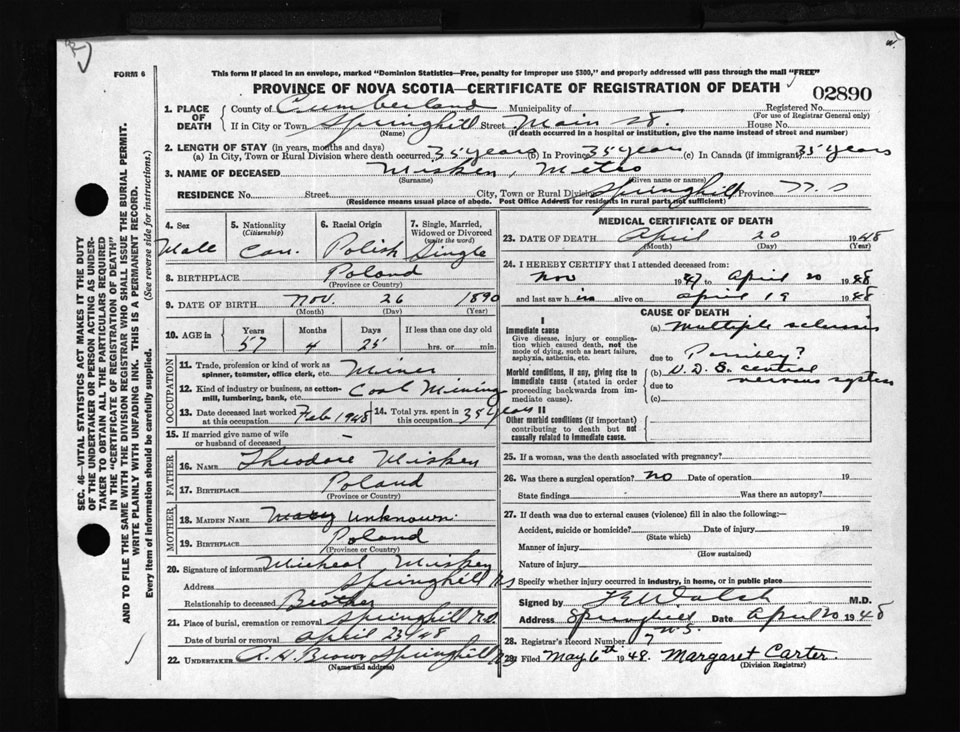 FORM 6
This form if placed in an envelope, marked "Dominion Statistics—Free, penalty for improper use $300," and properly addressed will pass through the mail "FREE"
PROVINCE OF NOVA SCOTIA—CERTIFICATE OF REGISTRATION OF DEATH
02890
1. PLACE OF DEATH
County of Cumberland Municipality of Registered No.
(For use of Registrar General only)
If in City or Town Springhill Street Main St. House No.
(Name) (If death occurred in a hospital or institution, give the name instead of street and number)
2. LENGTH OF STAY (in years, months and days)
(a) In City, Town or Rural Division where death occurred 35 years (b) In Province 35 years (c) In Canada (if immigrant) 35 years
3. NAME OF DECEASED Misken, Metro
(Surname) (Given name or names)
RESIDENCE No. Street City, Town or Rural Division Springhill Province N.S
(Residence means usual place of abode. Post Office Address for residents in rural parts not sufficient)
4. Sex Male
5. Nationality (Citizenship) Can.
6. Racial Origin Polish
7. Single, Married, Widowed or Divorced (write the word) Single
8. BIRTHPLACE Poland
(Province or Country)
9. DATE OF BIRTH Nov. 26 1890
(Month) (Day) (Year)
10. AGE in Years Months Days If less than one day old
57 4 25 hrs. or min.
OCCUPATION
11. Trade, profession or kind of work as spinner, teamster, office clerk, etc. Miner
12. Kind of industry or business, as cotton-mill, lumbering, bank, etc. Coal Mining
13. Date deceased last worked at this occupation Feb 1948
14. Total yrs. spent in this occupation 35 years
15. If married give name of wife or husband of deceased —
FATHER
16. NAME Theodore Misken
17. BIRTHPLACE Poland
(Province or Country)
MOTHER
18. MAIDEN NAME Mary Unknown
19. BIRTHPLACE Poland
(Province or Country)
20. Signature of informant Micheal Misken
Address Springhill NS
Relationship to deceased Brother
21. Place of burial, cremation or removal Springhill N.S.
Date of burial or removal April 23/48
22. UNDERTAKER A. H. Brown Springhill NS
(Name and address)
MEDICAL CERTIFICATE OF DEATH
23. DATE OF DEATH April 20 1948
(Month) (Day) (Year)
24. I HEREBY CERTIFY that I attended deceased from:
Nov 1947 to April 20 1948
and last saw him alive on April 19 1948
CAUSE OF DEATH
I
Immediate cause
Give disease, injury or complication which caused death, not the mode of dying, such as heart failure, asphyxia, asthenia, etc.
(a) Multiple sclerosis
due to Possibly?
Morbid conditions, if any, giving rise to immediate cause (stated in order proceeding backwards from immediate cause).
(b) V.D.S. central
due to nervous system
(c)
II
Other morbid conditions (if important) contributing to death but not causally related to immediate cause.
25. If a woman, was the death associated with pregnancy?
26. Was there a surgical operation? No Date of operation 19
State findings Was there an autopsy?
27. If death was due to external causes (violence) fill in also the following:—
Accident, suicide or homicide? Date of injury 19
(State which)
Manner of injury
(How sustained)
Nature of injury
Specify whether injury occurred in industry, in home, or in public place
Signed by Walsh M.D.
Address Date April 20 1948
N.S.
28. Registrar's Record Number 7
29. Filed May 6th 1948. Margaret Carter
(Division Registrar)
SEC. 46—VITAL STATISTICS ACT MAKES IT THE DUTY
OF THE UNDERTAKER OR PERSON ACTING AS UNDER-
TAKER TO OBTAIN ALL THE PARTICULARS REQUIRED
IN THE "CERTIFICATE OF REGISTRATION OF DEATH"
AND TO FILE THE SAME WITH THE DIVISION REGISTRAR WHO SHALL ISSUE THE BURIAL PERMIT.
WRITE PLAINLY WITH UNFADING INK. THIS IS A PERMANENT RECORD.
Every item of information should be carefully supplied. (See reverse side for instructions.)